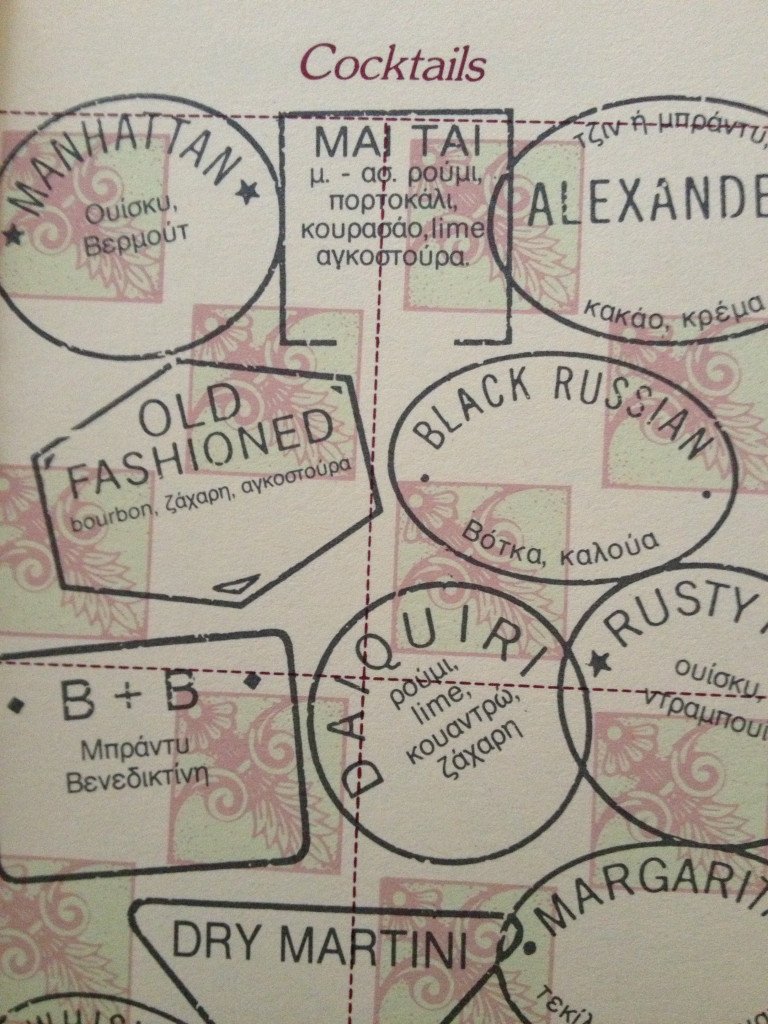 Cocktails
MANHATTAN
Ουίσκυ,
Βερμούτ
MAI TAI
μ. - ασ. ρούμι,
πορτοκάλι,
κουρασάο, lime
αγκοστούρα.
τζιν ή μπράντυ,
ALEXANDE
κακάο, κρέμα
OLD
FASHIONED
bourbon, ζάχαρη, αγκοστούρα
BLACK RUSSIAN
Βότκα, καλούα
B + B
Μπράντυ
Βενεδικτίνη
DAIQUIRI
ρούμι,
lime,
κουαντρώ,
ζάχαρη
RUSTY
ουίσκυ,
ντραμπουι
DRY MARTINI
MARGARITA
τεκίλ